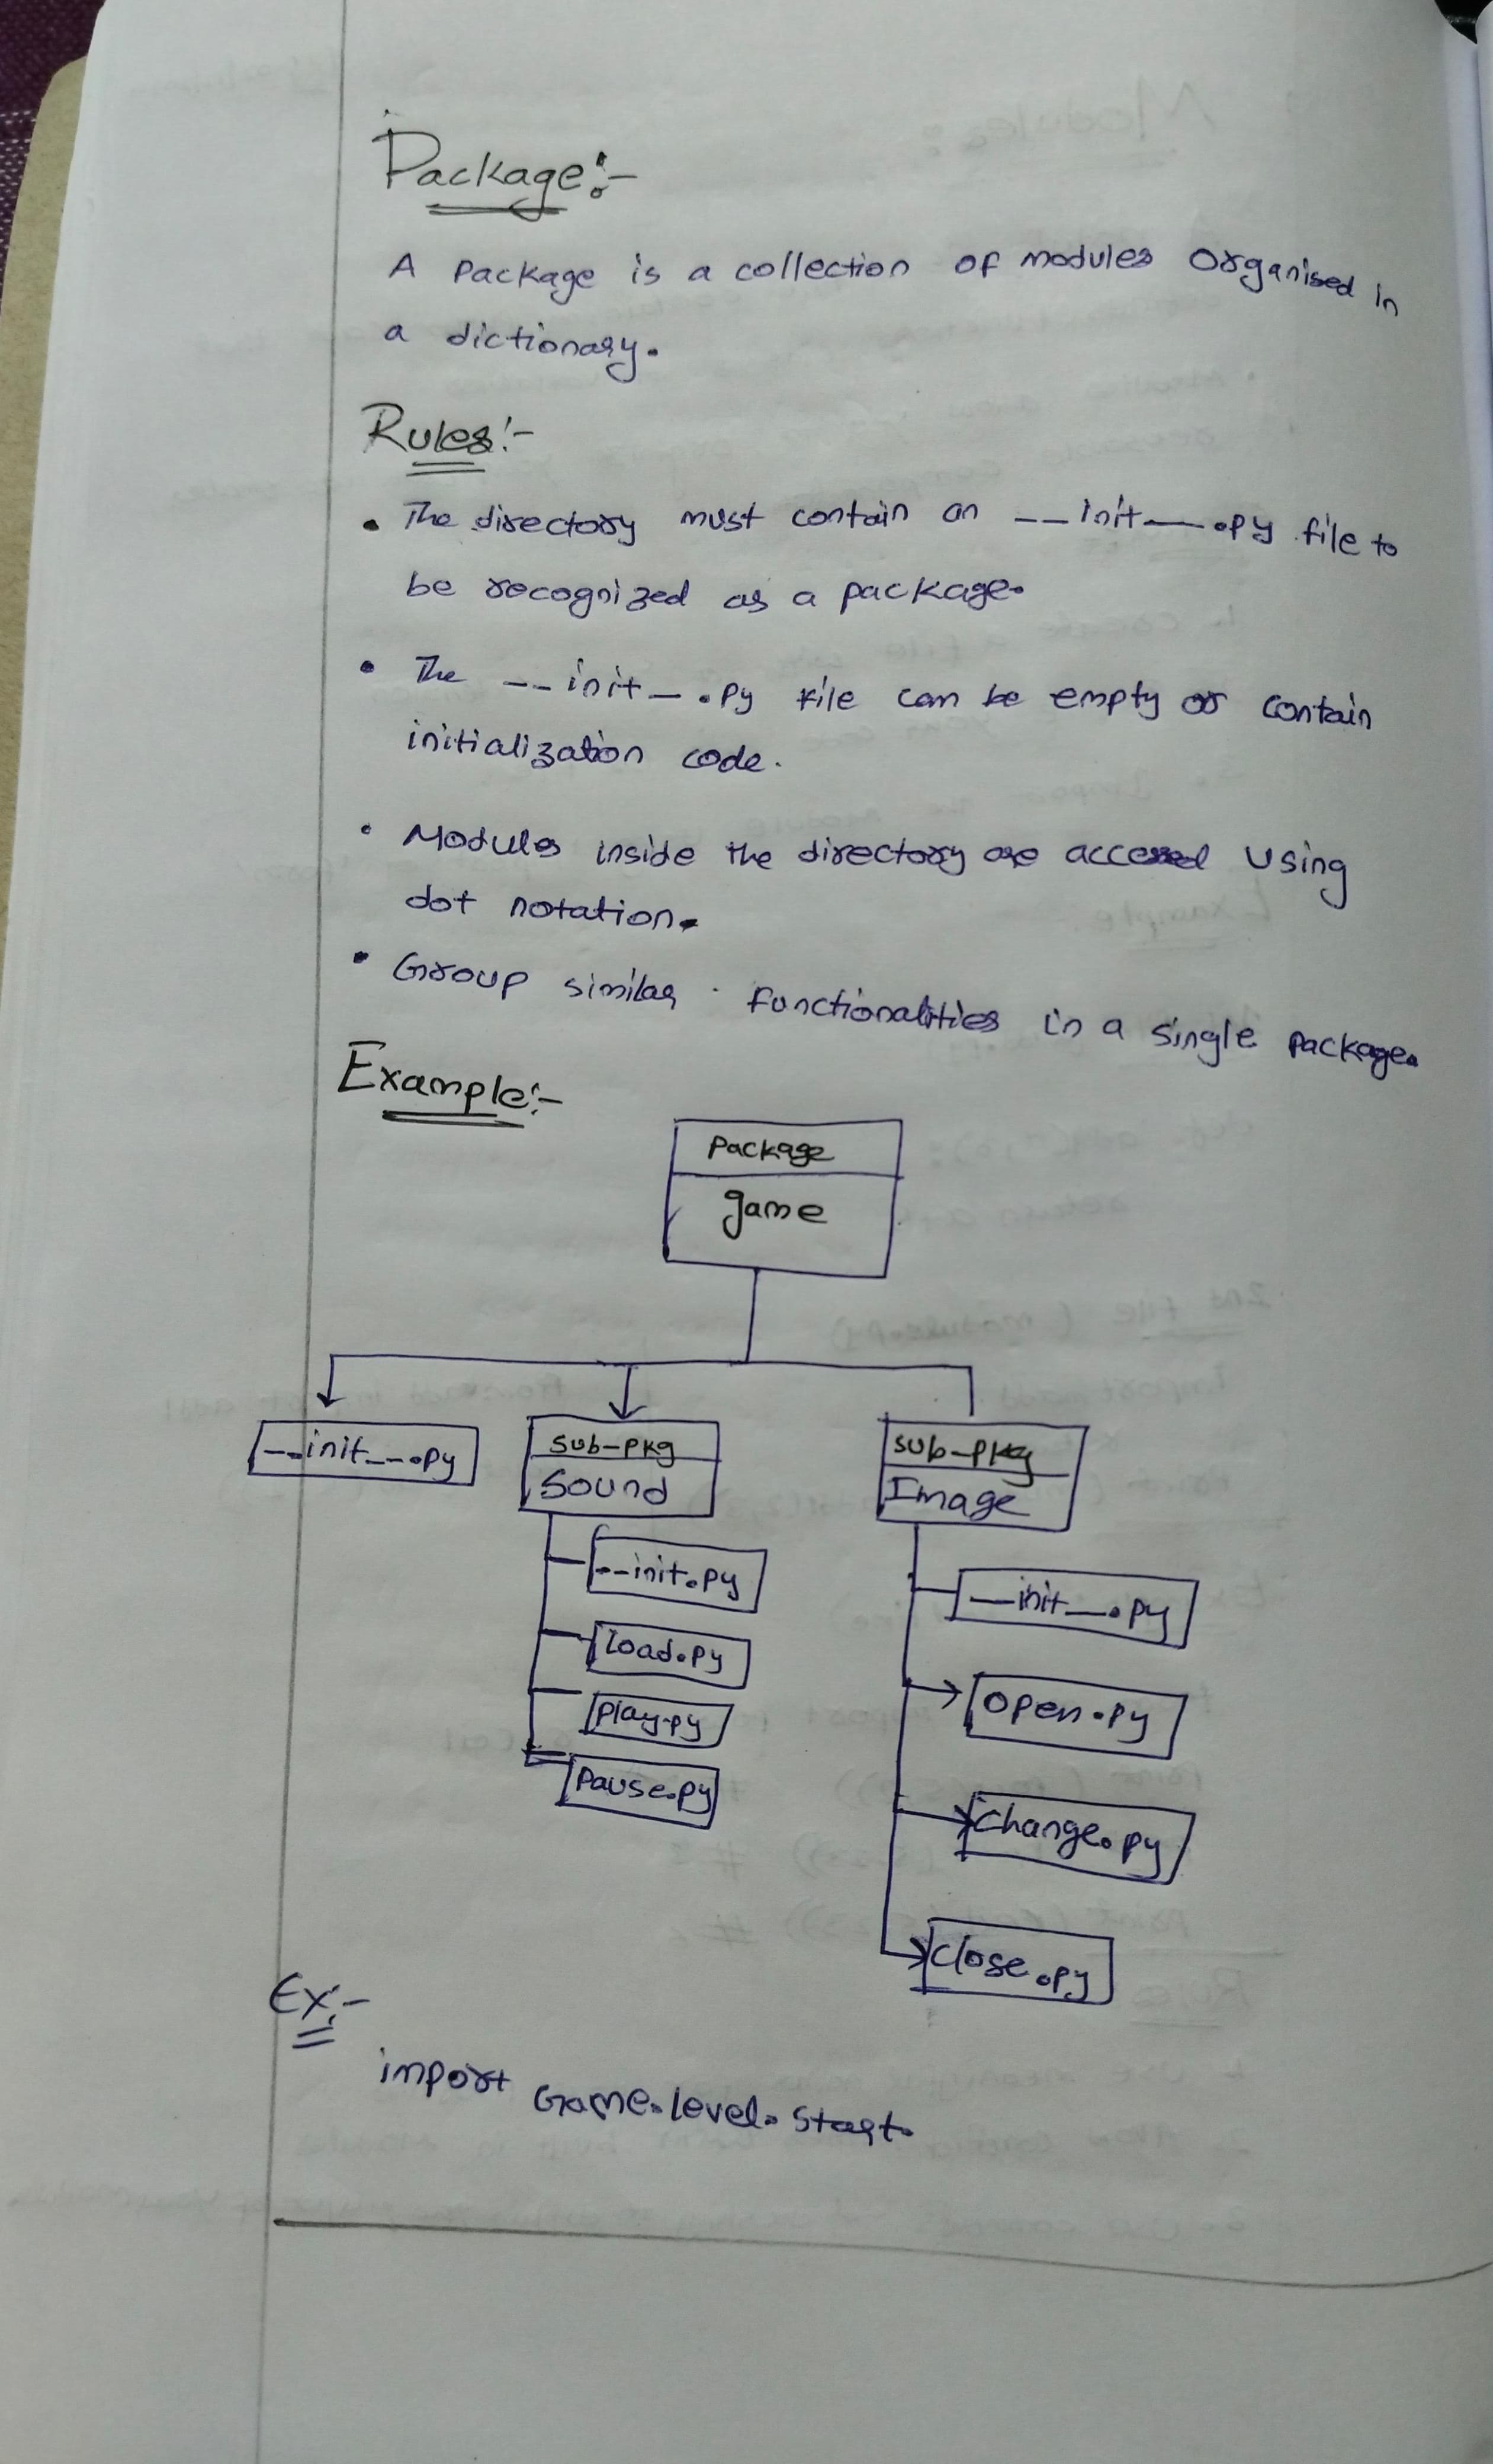 Package:-
A package is a collection of modules organised in
a dictionary.
Rules:-
• The directory must contain an __init__.py file to
be recognized as a package.
• The __init__.py file can be empty or contain
initialization code.
• Modules inside the directory are accessed using
dot notation.
• Group similar functionalities in a single package.
Example:-
Package
game
__init__.py
sub-pkg
Sound
sub-pkg
Image
--init.py
load.py
play.py
Pause.py
__init__.py
open.py
change.py
close.py
Ex:-
import Game.level.start.